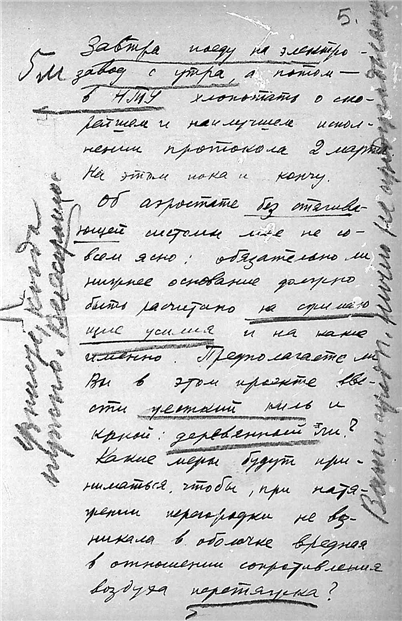 5.
5 м
Завтра поеду на электро-
завод с утра, а потом —
в НТУ хлопотать о ско-
рейшем и наилучшем испол-
нении протокола 2 марта.
На этом пока и кончу.
Об аэростате без стягива-
ющей системы мне не со-
всем ясно: обязательно ли
нижнее основание должно
быть расчитано на сжимаю-
щие усилия и на какие
именно. Предполагаете ли
Вы в этом проекте вве-
сти жесткий киль и
какой: деревянный ли?
Какие меры будут при-
ниматься, чтобы, при натя-
жении перегородки не воз-
никала в оболочке вредная
в отношении сопротивления
воздуха перетяжка?
когда
нужно.
ничего не